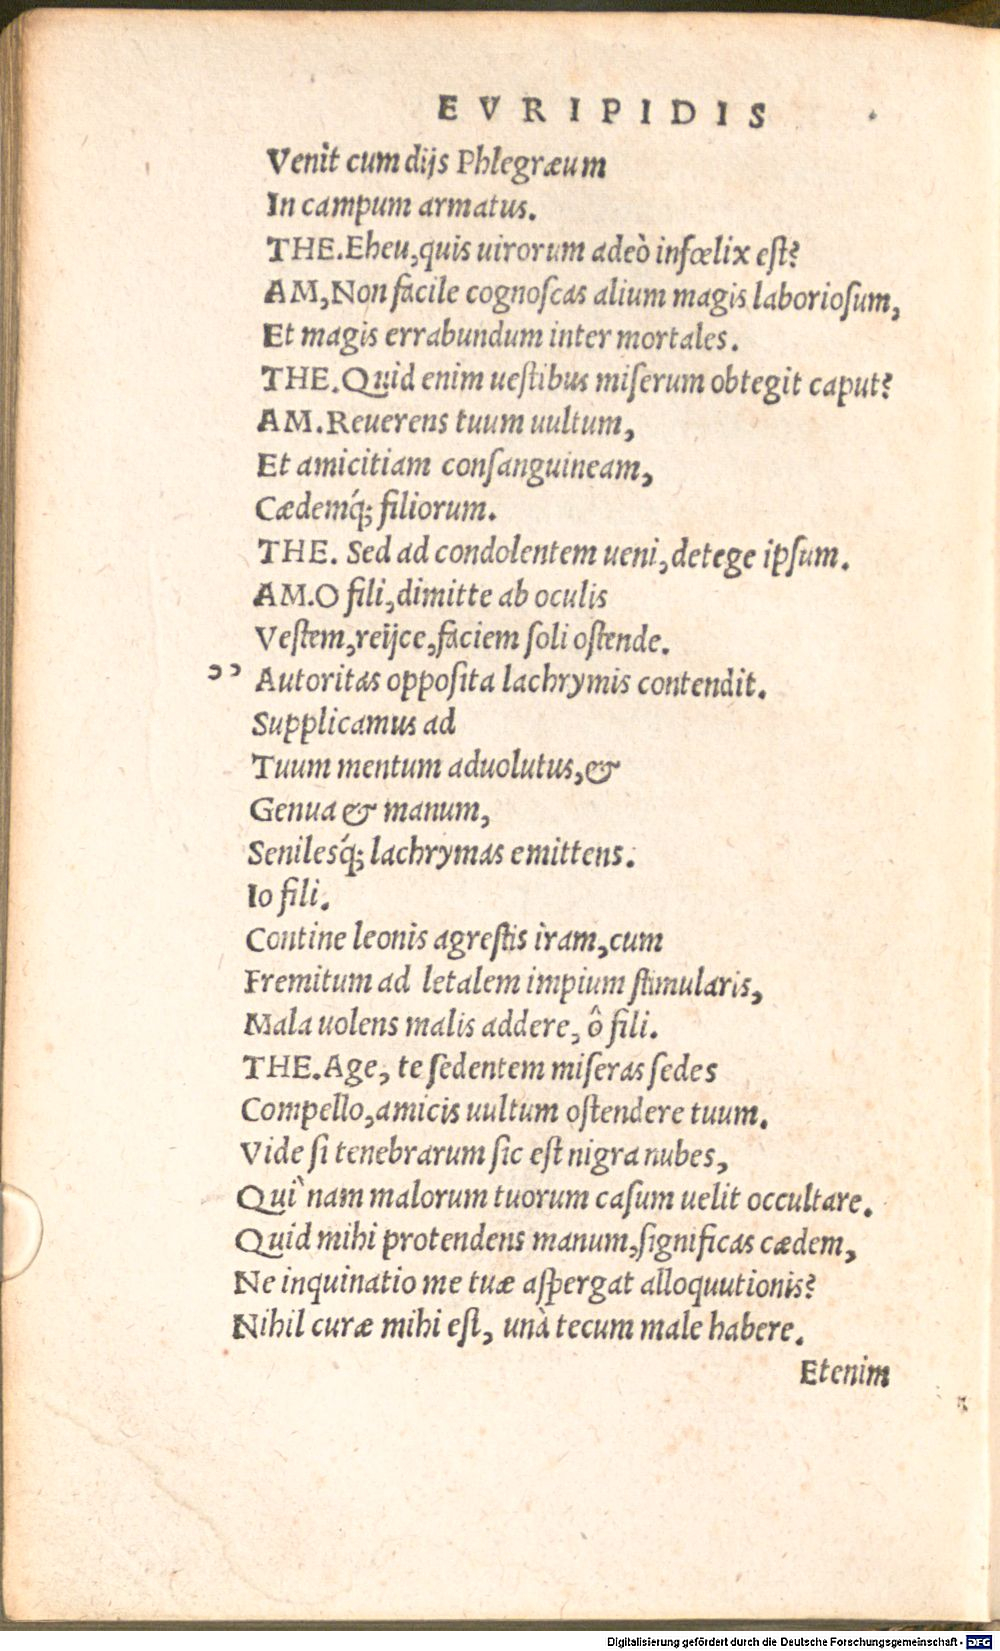 EVRIPIDIS
Venit cum dijs Phlegræum
In campum armatus.
THE. Eheu, quis uirorum adeò infœlix est?
AM, Non facile cognoscas alium magis laboriosum,
Et magis errabundum inter mortales.
THE. Quid enim uestibus miserum obtegit caput?
AM. Reuerens tuum uultum,
Et amicitiam consanguineam,
Cædemq́; filiorum.
THE. Sed ad condolentem ueni, detege ipsum.
AM. O fili, dimitte ab oculis
Vestem, reijce, faciem soli ostende.
" Autoritas opposita lachrymis contendit.
Supplicamus ad
Tuum mentum aduolutus, &
Genua & manum,
Senilesq́; lachrymas emittens.
Io fili.
Contine leonis agrestis iram, cum
Fremitum ad letalem impium stimularis,
Mala uolens malis addere, ô fili.
THE. Age, te sedentem miseras sedes
Compello, amicis uultum ostendere tuum.
Vide si tenebrarum sic est nigra nubes,
Quì nam malorum tuorum casum uelit occultare.
Quid mihi protendens manum, significas cædem,
Ne inquinatio me tuæ aspergat alloquutionis?
Nihil curæ mihi est, unà tecum male habere.
Etenim
Digitalisierung gefördert durch die Deutsche Forschungsgemeinschaft - DFG